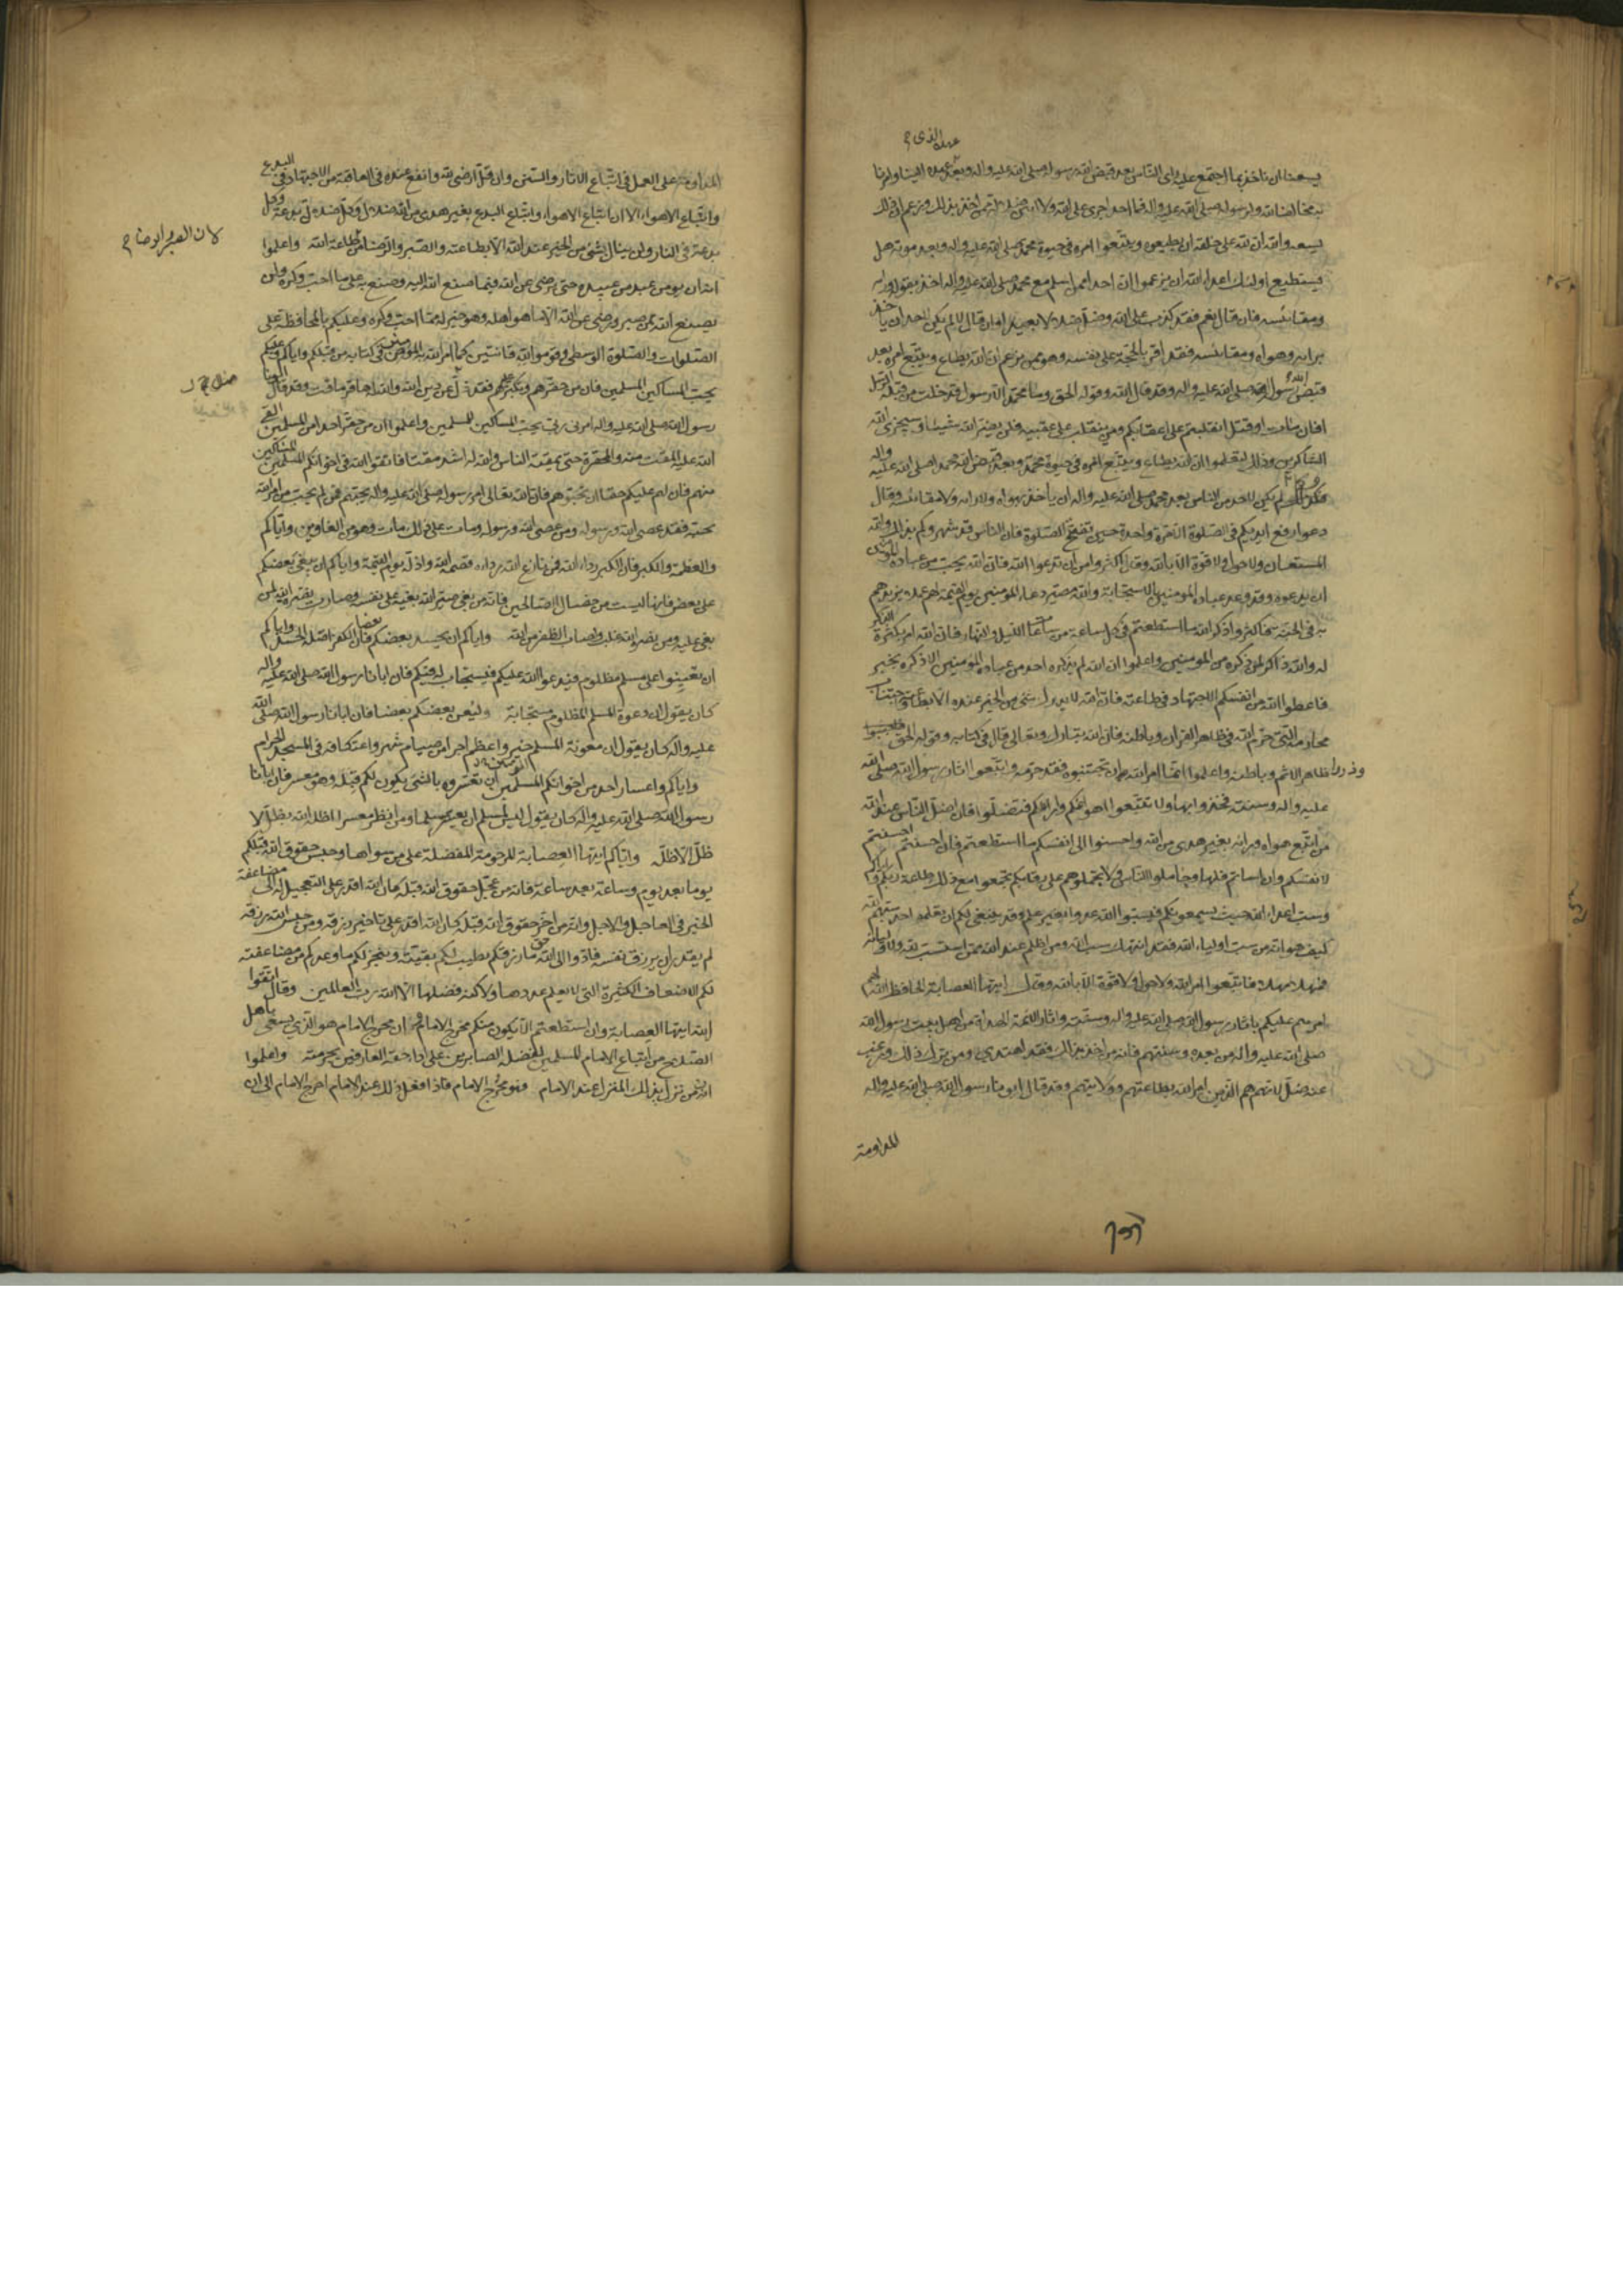 عهده الذى م
يسعنا ان ناخذ بما اجتمع عليه راى الناس بعد قبض الله رسوله صلى الله عليه واله وبعد عهده الينا وامرنا
به مخالفا لله ولرسوله صلى الله عليه واله فما احد اجرى على الله ولا ابين ضلالة ممن اخذ بذلك وزعم ان ذلك
يسعه والله ان لله على خلقه ان يطيعوه ويتبعوا امره فى حيوة محمد صلى الله عليه واله وبعد موته هل
يستطيع اولئك اعداء الله ان يزعموا ان احدا ممن اسلم مع محمد صلى الله عليه واله اخذ بقوله ورايه
ومقائسه فان قال نعم فقد كذب على الله وضل ضلالا بعيدا وان قال لا لم يكن لاحد ان ياخذ
برايه وهواه ومقائسه فقد اقر بالحجة على نفسه وهو ممن يزعم ان الله يطاع ويتبع امره بعد
قبض رسول الله صلى الله عليه واله وقد قال الله وقوله الحق وما محمد الا رسول قد خلت من قبله الرسل
افان مات او قتل انقلبتم على اعقابكم ومن ينقلب على عقبيه فلن يضر الله شيئا وسيجزى الله
الشاكرين وذلك لتعلموا ان الله يطاع ويتبع امره فى حيوة محمد وبعد قبض الله محمدا صلى الله عليه واله
وكما لم يكن لاحد من الناس بعد محمد صلى الله عليه واله ان ياخذ بهواه ولا رايه ولا مقائسه وقال
دعوا رفع ايديكم فى الصلوة الا مرة واحدة حين تفتتح الصلوة فان الناس قد شهروكم بذلك والله
المستعان ولا حول ولا قوة الا بالله وقال اكثروا من ان تدعوا الله فان الله يحب من عباده المؤمنين
ان يدعوه وقد وعد عباده المؤمنين بالاستجابة والله مصير دعاء المؤمنين يوم القيمة لهم عملا يزيدهم
به فى الجنة فاكثروا ذكر الله ما استطعتم فى كل ساعة من ساعات الليل والنهار فان الله امر بكثرة الذكر
له والله ذاكر لمن ذكره من المؤمنين واعلموا ان الله لم يذكره احد من عباده المؤمنين الا ذكره بخير
فاعطوا الله من انفسكم الاجتهاد فى طاعته فان الله لا يدرك شى من الخير عنده الا بطاعته واجتناب
محارمه التى حرم الله فى ظاهر القران وباطنه فان الله تبارك وتعالى قال فى كتابه وقوله الحق
وذروا ظاهر الاثم وباطنه واعلموا ان ما امر الله به ان تجتنبوه فقد حرمه واتبعوا اثار رسول الله صلى الله
عليه واله وسنته فخذوا بها ولا تتبعوا اهوائكم وارائكم فتضلوا فان اضل الناس عند الله
من اتبع هواه ورايه بغير هدى من الله واحسنوا الى انفسكم ما استطعتم فان احسنتم احسنتم
لانفسكم وان اساتم فلها وجاملوا الناس ولا تحملوهم على رقابكم تجمعوا مع ذلك طاعة ربكم واياكم
وسب اعداء الله حيث يسمعونكم فيسبوا الله عدوا بغير علم وقد ينبغى لكم ان تعلموا حد سبهم لله
كيف هو انه من سب اولياء الله فقد انتهك سب الله ومن اظلم عند الله ممن استسب لله ولاوليائه
فمهلا مهلا فاتبعوا امر الله ولا حول ولا قوة الا بالله وقال ايتها العصابة الحافظ الله لهم
امرهم عليكم باثار رسول الله صلى الله عليه واله وسنته واثار الائمة الهداة من اهل بيت رسول الله
صلى الله عليه واله من بعده وسنتهم فانه من اخذ بذلك فقد اهتدى ومن ترك ذلك ورغب
عنه ضل لانهم هم الذين امر الله بطاعتهم وولايتهم وقد قال ابونا رسول الله صلى الله عليه واله
المداومة
المداومة على العمل فى اتباع الاثار والسنن وان قل ارضى لله وانفع عنده فى العاقبة من الاجتهاد فى البدع
واتباع الاهواء الا ان اتباع الاهواء واتباع البدع بغير هدى من الله ضلال وكل ضلالة بدعة وكل
بدعة فى النار ولن ينال شى من الخير عند الله الا بطاعته والصبر والرضا من طاعة الله واعلموا
لان الصبر والرضا م
انه لن يومن عبد من عبيده حتى يرضى عن الله فيما صنع الله اليه وصنع به على ما احب وكره ولن
يصنع الله بمن صبر ورضى عن الله الا ما هو اهله وهو خير له مما احب وكره وعليكم بالمحافظة على
الصلوات والصلوة الوسطى وقوموا لله قانتين كما امر الله به المؤمنين فى كتابه من قبلكم واياكم وعليكم
بحب المساكين المسلمين فان من حقرهم وتكبر عليهم فقد زل عن دين الله والله له حاقر ماقت وقد قال ابونا
رسول الله صلى الله عليه واله امرنى ربى بحب المساكين المسلمين واعلموا ان من حقر احدا من المسلمين القى
الله عليه المقت منه والمحقرة حتى يمقته الناس والله له اشد مقتا فاتقوا الله فى اخوانكم المسلمين المساكين
منهم فان لهم عليكم حقا ان تحبوهم فان الله تعالى امر رسوله صلى الله عليه واله بحبهم فمن لم يحب من امر الله
بحبه فقد عصى الله ورسوله ومن عصى الله ورسوله ومات على ذلك مات وهو من الغاوين واياكم
والعظمة والكبر فان الكبر رداء الله فمن نازع الله رداءه قصمه الله واذله يوم القيمة واياكم ان يبغى بعضكم
على بعض فانها ليست من خصال الصالحين فانه من بغى صير الله بغيه على نفسه وصارت نصرة الله لمن
بغى عليه ومن نصره الله غلب واصاب الظفر من الله واياكم ان يحسد بعضكم بعضا فان الكفر اصله الحسد واياكم
ان تعينوا على مسلم مظلوم فيدعو الله عليكم فيستجاب له فيكم فان ابانا رسول الله صلى الله عليه واله
كان يقول ان دعوة المسلم المظلوم مستجابة وليعن بعضكم بعضا فان ابانا رسول الله صلى الله
عليه واله كان يقول ان معونة المسلم خير واعظم اجرا من صيام شهر واعتكافه فى المسجد الحرام
واياكم واعسار احد من اخوانكم المسلمين ان تعسروه بالشى يكون لكم قبله وهو معسر فان ابانا
رسول الله صلى الله عليه واله كان يقول ليس لمسلم ان يعسر مسلما ومن انظر معسرا اظله الله بظله يوم لا
ظل الا ظله واياكم ايتها العصابة المرحومة المفضلة على من سواها وحبس حقوق الله قبلكم
يوما بعد يوم وساعة بعد ساعة فانه من عجل حقوق الله قبله كان الله اقدر على التعجيل له الى مضاعفة
الخير فى العاجل والاجل وانه من اخر حقوق الله قبله كان الله اقدر على تاخير رزقه ومن حبس الله رزقه
لم يقدر ان يرزق نفسه فادوا الى الله حق ما رزقكم يطيب لكم بقيته وينجز لكم ما وعدكم من مضاعفته
لكم الاضعاف الكثيرة التى لا يعلم عددها ولا كنه فضلها الا الله رب العالمين وقال اتقوا
الله ايتها العصابة وان استطعتم الا يكون منكم محرج الامام فان محرج الامام هو الذى يسعى باهل
الصلاح من اتباع الامام المسلمين لفضله الصابرين على اداء حقه العارفين بحرمته واعلموا
انه من نزل بذلك المنزل عند الامام فهو محرج الامام فاذا فعل ذلك عند الامام احرج الامام الى ان